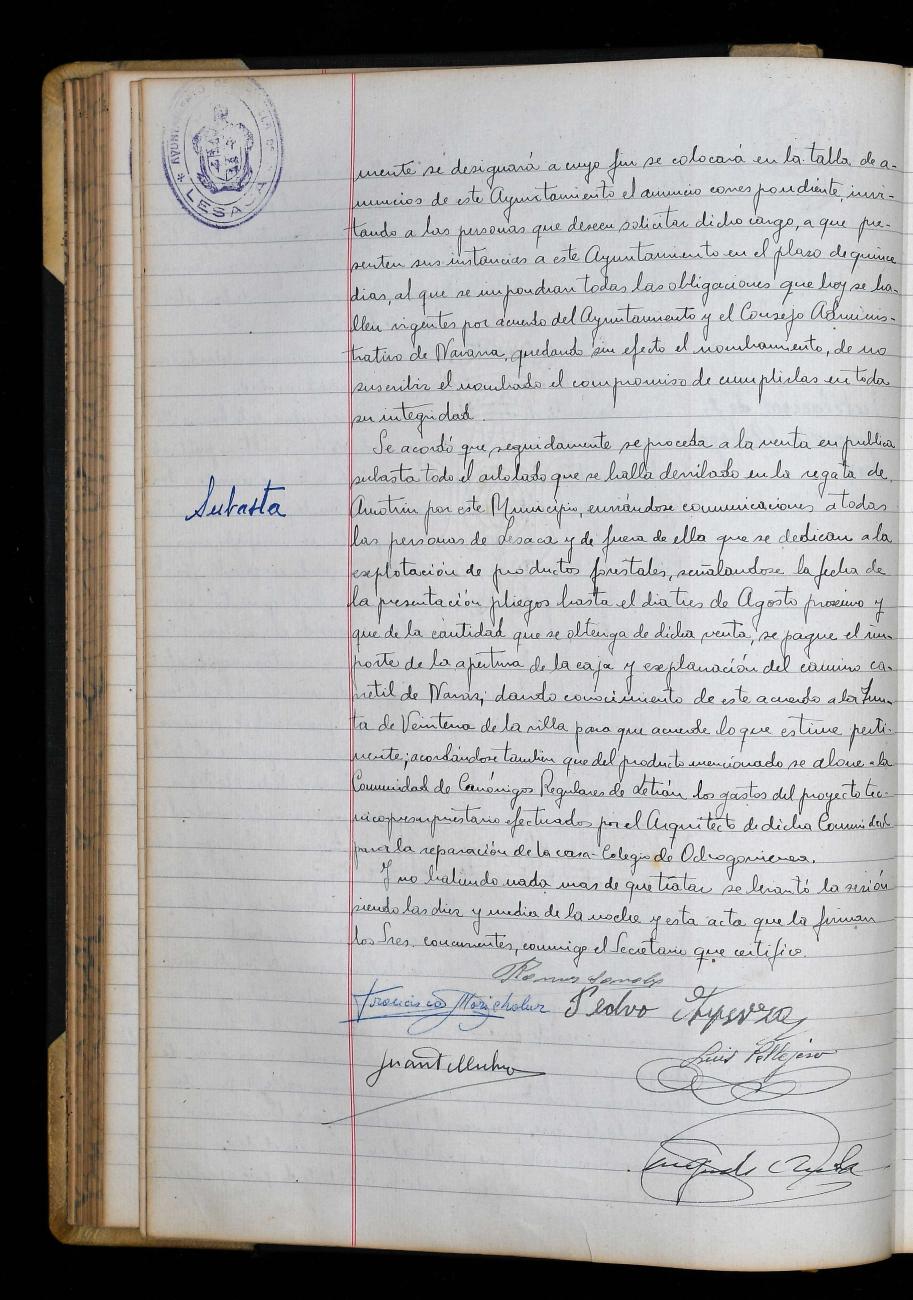 AYUNTAMIENTO DE LA VILLA DE
LESACA
mente se designará a cuyo fin se colocará en la tabla de a-
nuncios de este Ayuntamiento el anuncio correspondiente, invi-
tando a las personas que deseen solicitar dicho cargo, a que pre-
senten sus instancias a este Ayuntamiento en el plazo de quince
dias, al que se impondran todas las obligaciones que hoy se ha-
llen vigentes por acuerdo del Ayuntamiento y el Consejo Adminis-
trativo de Navarra, quedando sin efecto el nombramiento, de no
suscribir el nombrado el compromiso de cumplirlas en toda
su integridad.
Se acordó que seguidamente se proceda a la venta en publica
Subasta
subasta todo el arbolado que se halla derribado en la regata de
por este Municipio, enviándose comunicaciones a todas
las personas de Lesaca y de fuera de ella que se dedican a la
explotación de productos forestales, señalandose la fecha de
la presentación pliegos hasta el dia tres de Agosto proximo y
que de la cantidad que se obtenga de dicha venta, se pague el im-
porte de la apertura de la caja y explanación del camino ca-
rretil de Navaz; dando conocimiento de este acuerdo a la Jun-
ta de Veintena de la villa para que acuerde lo que estime perti-
nente; acordándose tambien que del producto mencionado se abone a la
Comunidad de Canónigos Regulares de Letrán los gastos del proyecto tec-
nico presupuestario efectuados por el Arquitecto de dicha Comunidad
para la reparación de la casa-Colegio de
Y no habiendo nada mas de que tratar se levantó la sesión
siendo las diez y media de la noche y esta acta que la firman
los Sres. concurrentes, conmigo el Secretario que certifico.
Francisco
Pedro
Luis Pellejero